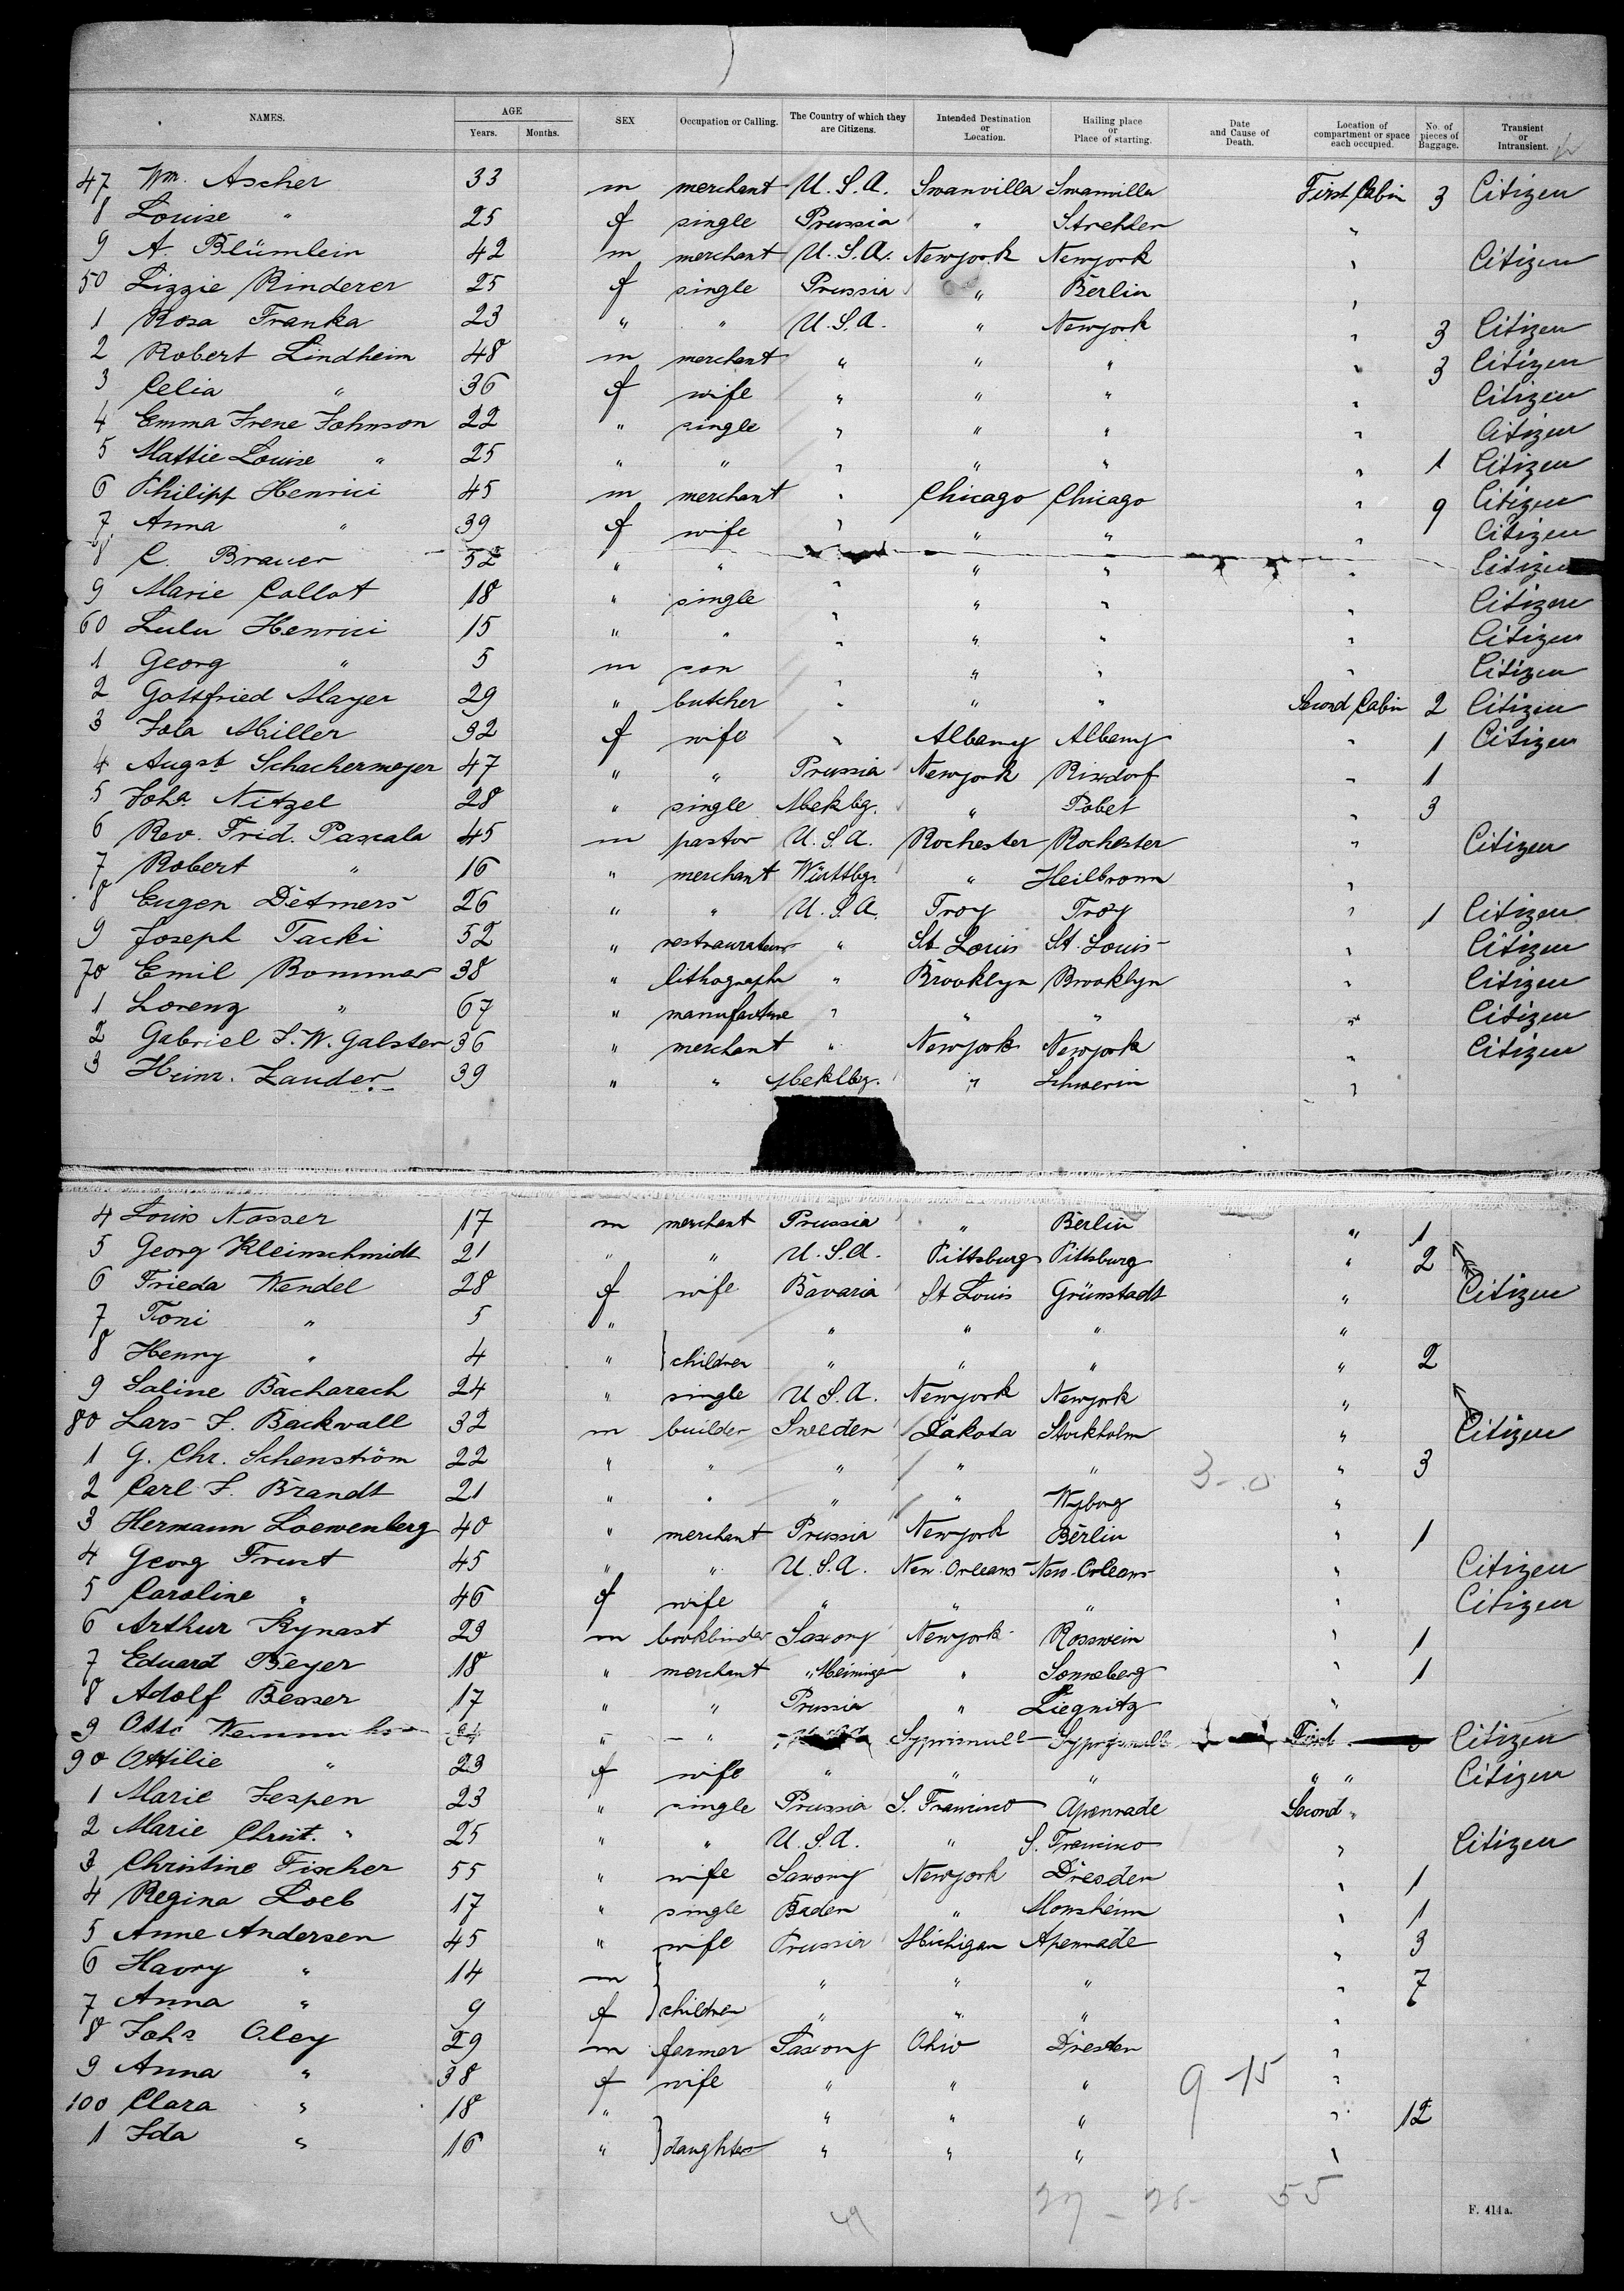 NAMES. AGE Years. Months. SEX Occupation or Calling. The Country of which they are Citizens. Intended Destination or Location. Hailing place or Place of starting. Date and Cause of Death. Location of compartment or space each occupied. No. of pieces of Baggage. Transient or Intransient.
47 Wm. Ascher 33 m merchant U.S.A. Swanvilla Swanvilla First Cabin 3 Citizen
8 Louise " 25 f single Prussia " Strehlen "
9 A. Blümlein 42 m merchant U.S.A. Newyork Newyork " Citizen
50 Lizzie Rinderer 25 f single Prussia " Berlin "
1 Rosa Franka 23 " " U.S.A. " Newyork " 3 Citizen
2 Robert Lindheim 48 m merchant " " " " 3 Citizen
3 Celia " 36 f wife " " " " Citizen
4 Emma Irene Johnson 22 " single " " " " Citizen
5 Mattie Louise " 25 " " " " " " 1 Citizen
6 Philipp Henrici 45 m merchant " Chicago Chicago " 9 Citizen
7 Anna " 39 f wife " " " " Citizen
8 C. Brauer 52 " " " " " Citizen
9 Marie Collot 18 " single " " " " Citizen
60 Lulu Henrici 15 " " " " " " Citizen
1 Georg " 5 m son " " " " Citizen
2 Gottfried Mayer 29 " butcher " " " Second Cabin 2 Citizen
3 Joha Miller 32 f wife " Albany Albany " 1 Citizen
4 Augst. Schachermeyer 47 " " Prussia Newyork Rixdorf " 1
5 Joha. Nitzel 28 " single Mekbg. " Pobet " 3
6 Rev. Frid. Pascala 45 m pastor U.S.A. Rochester Rochester " Citizen
7 Robert " 16 " merchant Württbg. " Heilbronn "
8 Eugen Detmers 26 " " U.S.A. Troy Troy " 1 Citizen
9 Joseph Tacki 52 " restaurateur " St. Louis St. Louis " Citizen
70 Emil Bommer 38 " lithograph " Brooklyn Brooklyn " Citizen
1 Lorenz " 67 " manufacture " " " " Citizen
2 Gabriel S. W. Galster 36 " merchant " Newyork Newyork " Citizen
3 Heinr. Zander 39 " " Meklbg. " Schwerin "
4 Louis Nasser 17 m merchant Prussia " Berlin " 1
5 Georg Kleinschmidt 21 " " U.S.A. Pittsburg Pittsburg " 2
6 Frieda Wendel 28 f wife Bavaria St Louis Grünstadt " Citizen
7 Toni " 5 " " " " "
8 Henny " 4 " children " " " " 2
9 Saline Bacharach 24 " single U.S.A. Newyork Newyork "
80 Lars F. Backvall 32 m builder Sweden Dakota Stockholm " Citizen
1 G. Chr. Schenström 22 " " " " " 3-0 " 3
2 Carl F. Brandt 21 " " " " Wyborg "
3 Hermann Loewenberg 40 " merchant Prussia Newyork Berlin " 1
4 Georg Trust 45 " " U.S.A. New Orleans New Orleans " Citizen
5 Caroline " 46 f wife " " " " Citizen
6 Arthur Kynast 23 m bookbinder Saxony Newyork Rosswein " 1
7 Eduard Beyer 18 " merchant " Meininge " Sonneberg " 1
8 Adolf Besser 17 " " Prussia " Liegnitz "
9 Otto " " First Citizen
90 Ottilie " 23 f wife " " " " " Citizen
1 Marie Jespen 23 " single Prussia S. Francisco Apenrade Second "
2 Marie Christ. " 25 " " U.S.A. " S. Francisco " Citizen
3 Christine Fischer 55 " wife Saxony Newyork Dresden " 1
4 Regina Loeb 17 " single Baden " Monsheim " 1
5 Anne Andersen 45 " wife Prussia Michigan Apenrade " 3
6 Havry " 14 m " " " " 7
7 Anna " 9 f children " " " "
8 Johs Oley 29 m farmer Saxony Ohio Dresden "
9 Anna " 38 f wife " " " 9-15 "
100 Clara " 18 " " " " " 12
1 Ida " 16 " daughters " " " "
49 27 - 28 - 55
F. 414a.